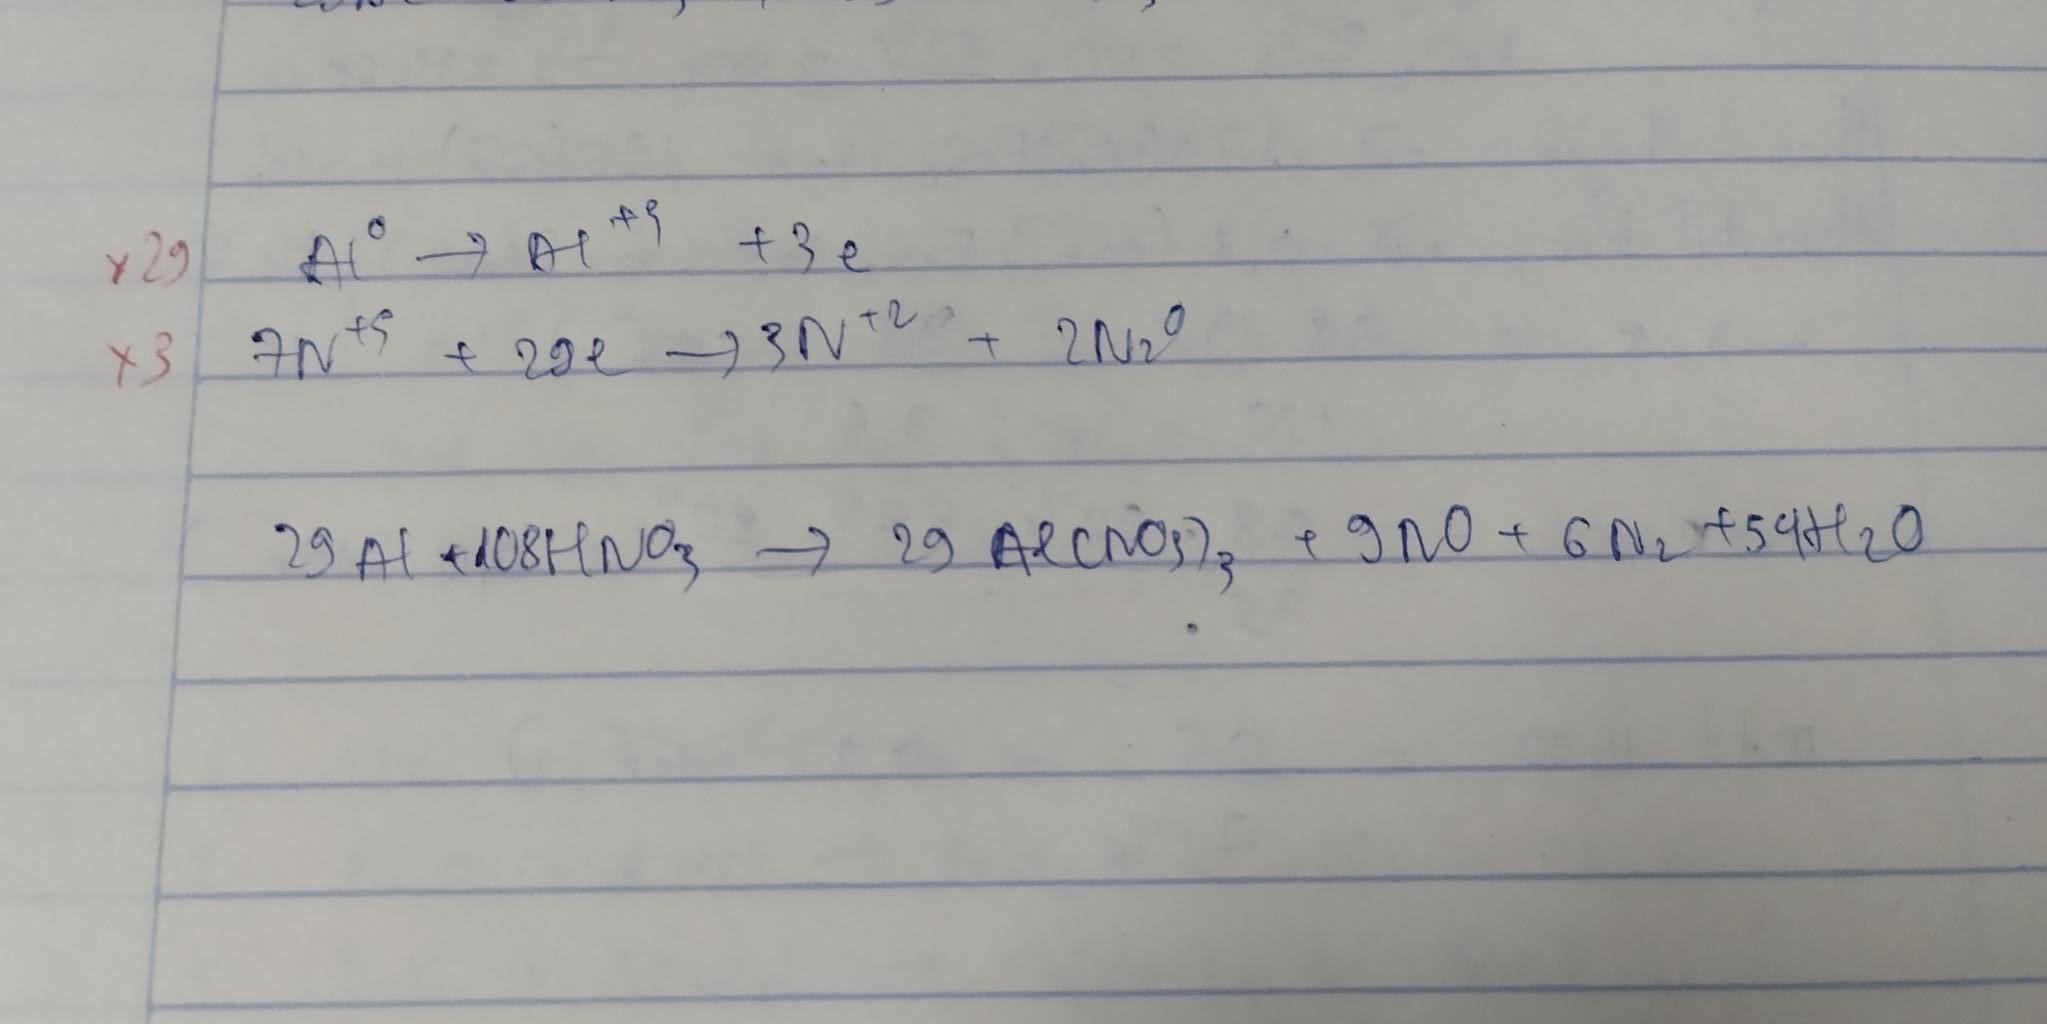 ×29 Al⁰ → Al⁺³ +3e
×3 7N⁺⁵ + 29e → 3N⁺² + 2N₂⁰
29 Al + 108HNO₃ → 29 Al(NO₃)₃ + 9NO + 6N₂ + 54H₂O